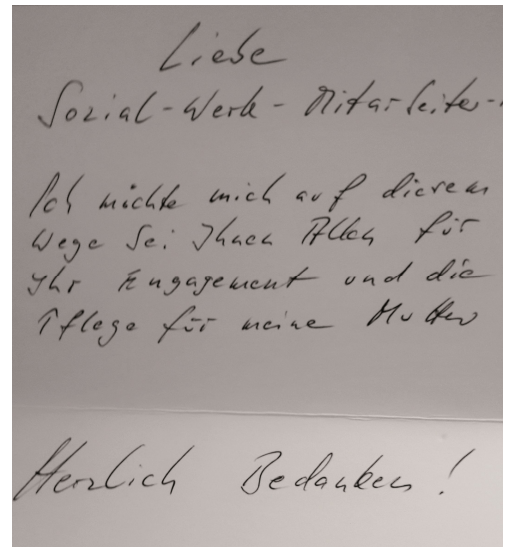 Liebe
Sozial-Werk-Mitarbeiter-
Ich möchte mich auf diesem
Wege bei Ihnen Allen für
Ihr Engagement und die
Pflege für meine Mutter
Herzlich Bedanken!